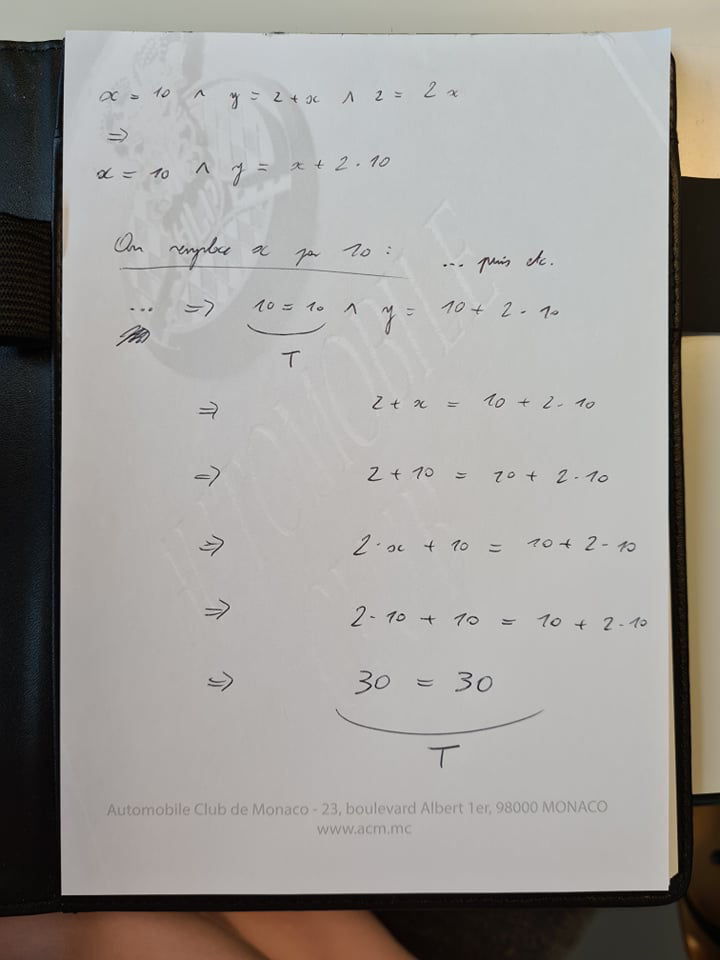 x = 10 ∧ y = z + x ∧ z = 2x
⇒
x = 10 ∧ y = x + 2·10
On remplace x par 10 :
... puis etc.
... ⇒ 10 = 10 ∧ y = 10 + 2·10
T
⇒ z + x = 10 + 2·10
⇒ z + 10 = 10 + 2·10
⇒ 2·x + 10 = 10 + 2·10
⇒ 2·10 + 10 = 10 + 2·10
⇒ 30 = 30
T
Automobile Club de Monaco - 23, boulevard Albert 1er, 98000 MONACO
www.acm.mc